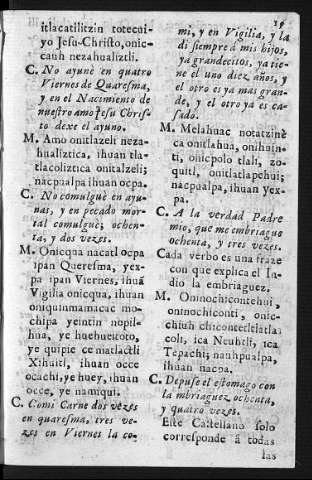 19
itlacatilitzin totecui-
yo Jesu-Christo, onic-
cauh nezahualiztli.
C. No ayunè en quatro
Viernes de Quaresma,
y en el Nacimiento de
nuestro amo Jesu Chris-
to dexe el ayuno.
M. Amo onitlazeli neza-
hualiztica, ihuan tla-
tlacoliztica onitalzeli;
nacpualpa ihuan ocpa.
C. No comulguè en ayu-
nas, y en pecado mor-
tal comulguè; ochen-
ta, y dos vezes.
M. Onicqua nacatl ocpa
ipan Queresma, yex-
pa ipan Viernes, ihuã
Vigilia onicqua, ihuan
oniquinmamacac mo-
chipa yeintin nopil-
hua, ye huehueitoto,
ye quipie ce matlactli
Xihuitl, ihuan occe
ocachi, ye huey, ihuan
occe, ye namiqui.
C. Comi Carne dos vezes
en quaresma, tres ve-
zes en Viernes la co-
mi, y en Vigilia, y la
di siempre à mis hijos,
ya grandecitos, ya tie-
ne el uno diez años, y
el otro es ya mas gran-
de, y el otro ya es ca-
sado.
M. Melahuac notatzinè
ca onitlahua, onihuin-
ti, onicpolo tlali, zo-
quitl, onitlatlapehui;
nacpualpa, ihuan yex-
pa.
C. A la verdad Padre
mio, que me embriague
ochenta, y tres vezes.
Cada verbo es una fraze
con que explica el In-
dio la embriaguez.
M. Oninochicontehui,
oninochiconti, onic-
chiuh
colt, ica Neuhtli, ica
Tepachi; nauhpualpa,
ihuan nacpa.
C. Depuse el estomago con
la mbriaguez ochenta,
y quatro vezes.
Este Castellano solo
corresponde à todas
las